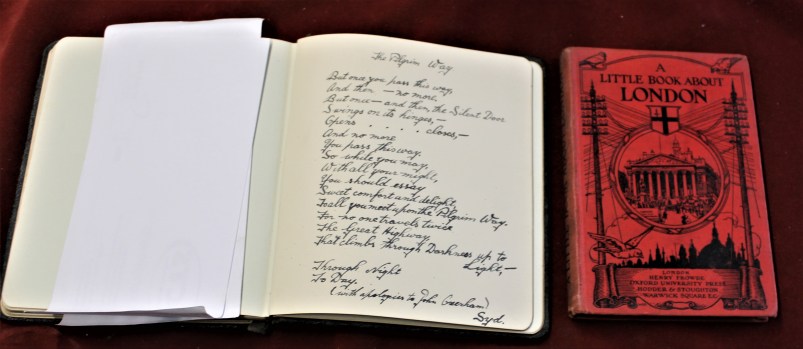 The Pilgrim Way
But once you pass this way,
And then — no more,
But once — and then the Silent Door
Swings on its hinges, —
Opens . . . . . closes, —
And no more
You pass this way.
So while you may,
With all your might,
You should essay
Sweet comfort and delight,
To all you meet upon the Pilgrim Way.
For no one travels twice
The Great Highway
That climbs through Darkness up to
Light, —
Through Night
To Day.
(with apologies to John Oxenham)
Syd.
A
LITTLE BOOK ABOUT
LONDON
LONDON
HENRY FROWDE
OXFORD UNIVERSITY PRESS
HODDER & STOUGHTON
WARWICK SQUARE E.C.